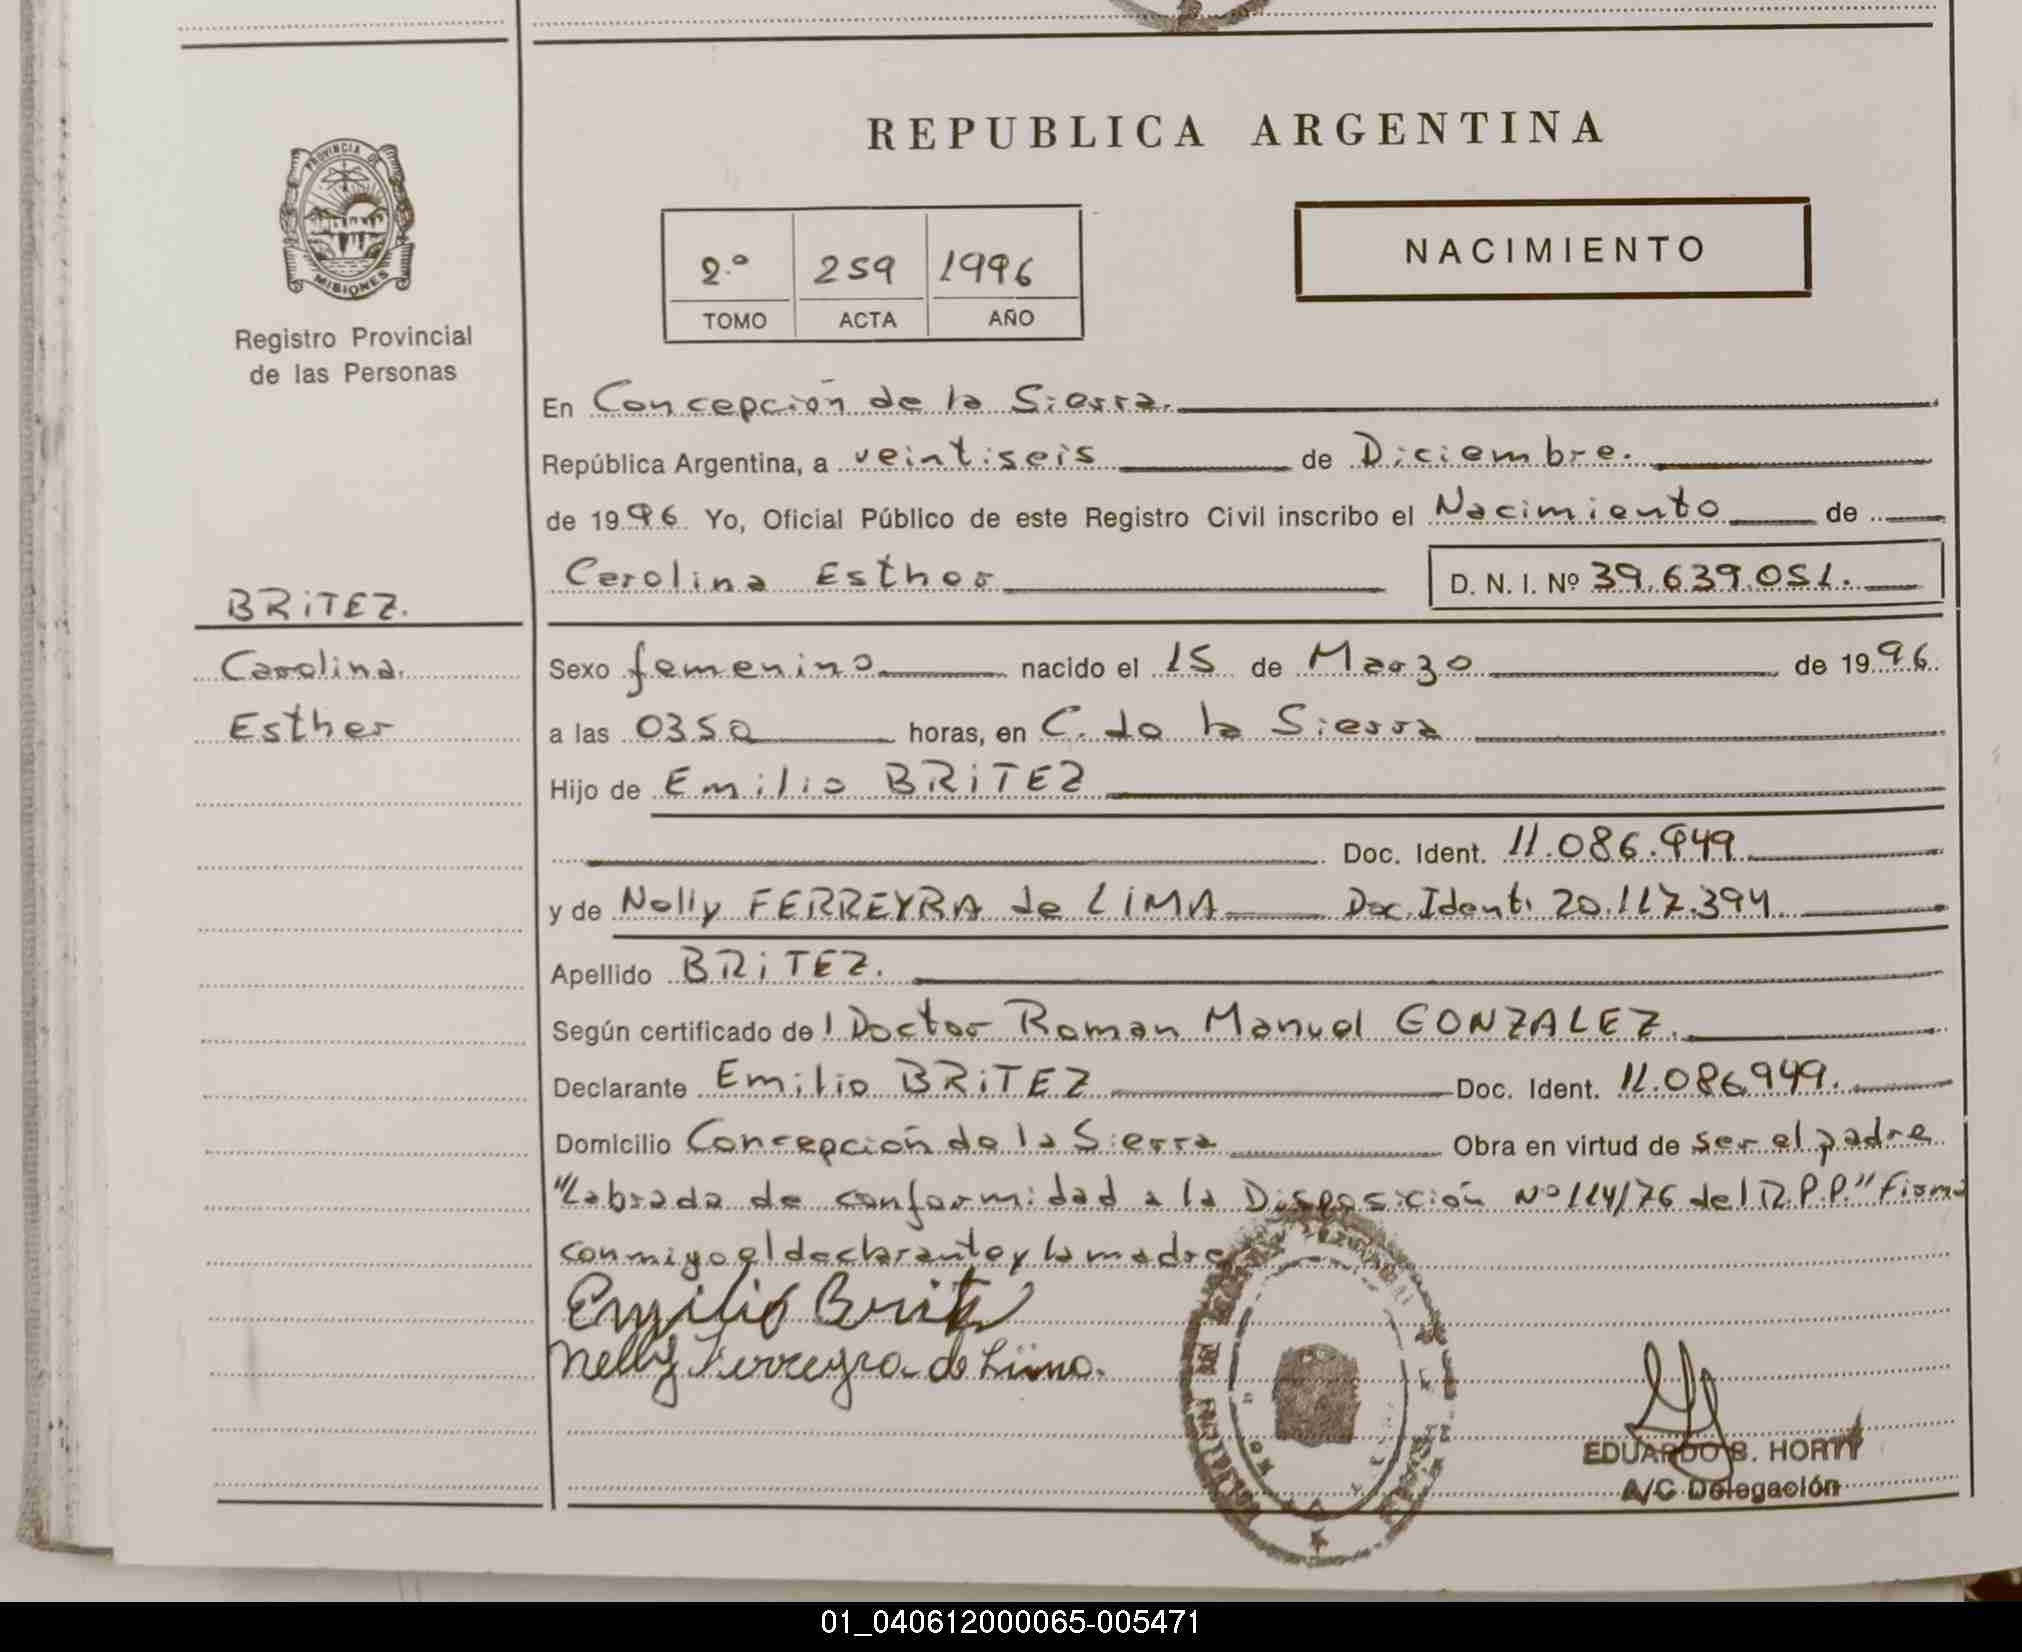 REPUBLICA ARGENTINA
PROVINCIA DE
MISIONES
Registro Provincial
de las Personas
NACIMIENTO
2.º 259 1996
TOMO ACTA AÑO
En Concepción de la Sierra.
República Argentina, a veintiseis de Diciembre.
de 1996 Yo, Oficial Público de este Registro Civil inscribo el Nacimiento de
Carolina Esther D. N. I. Nº 39.639.051.
BRiTEZ.
Carolina
Esther
Sexo femenino nacido el 15 de Marzo de 1996
a las 0350 horas, en C. de la Sierra
Hijo de Emilio BRiTEZ
Doc. Ident. 11.086.949
y de Nelly FERREYRA de LiMA Doc. Ident. 20.117.394
Apellido BRiTEZ.
Según certificado del Doctor Roman Manuel GONZALEZ.
Declarante Emilio BRiTEZ Doc. Ident. 11.086.949.
Domicilio Concepción de la Sierra Obra en virtud de ser el padre
"Labrada de conformidad a la Disposición Nº 114/76 del R.P.P." Firma
conmigo el declarante y la madre
Emilio Britez
Nelly Ferreyra de Lima.
EDUARDO B. HORTT
A/C Delegación
01_040612000065-005471